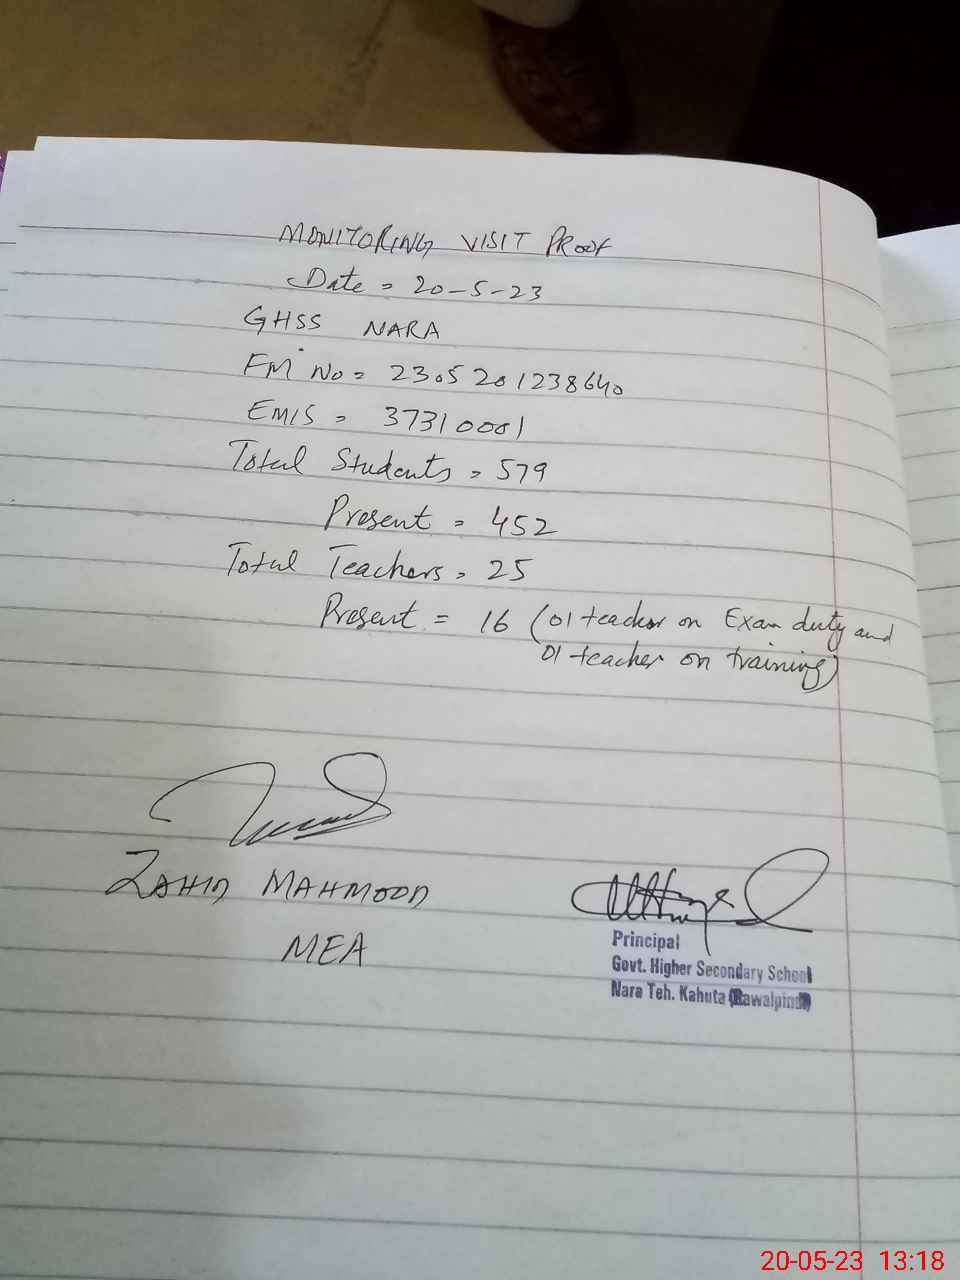 MONITORING VISIT PROOF
Date = 20-5-23
GHSS NARA
FM No = 2305201238640
EMIS = 37310001
Total Students = 579
Present = 452
Total Teachers = 25
Present = 16 (01 teacher on Exam duty and
01 teacher on training)
ZAHID MAHMOOD
MEA
Principal
Govt. Higher Secondary School
Nara Teh. Kahuta (Rawalpindi)
20-05-23 13:18